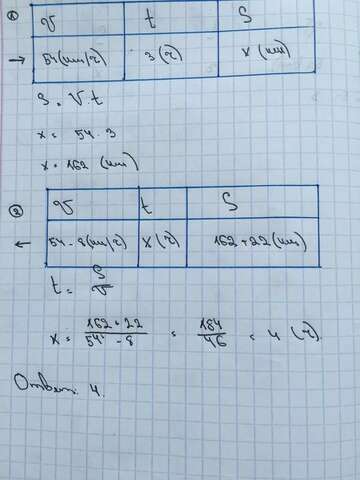 ①
v t S
→ 54(км/ч) 3(ч) x(км)
S = V.t
x = 54 . 3
x = 162 (км)
②
v t S
← 54-8(км/ч) x(ч) 162+22(км)
t = S/v
x = 162+22/54-8 = 184/46 = 4 (ч).
Ответ: 4.